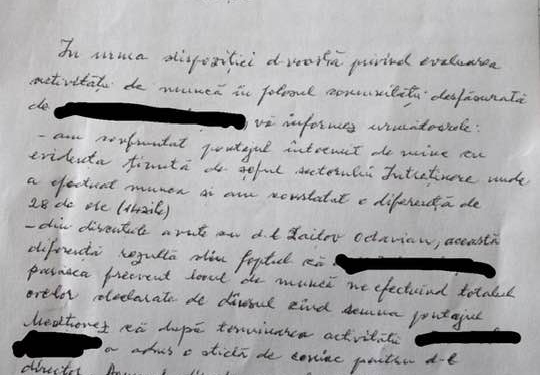 În urma dispoziției d-voastră privind evaluarea
activității de muncă în folosul comunității desfășurată
de , vă informez următoarele:
- am confruntat pontajul întocmit de mine cu
evidența ținută de șeful sectorului Întreținere unde
a efectuat munca și am constatat o diferență de
28 de ore (14 zile)
- din discuțiile avute cu d-l Zaitov Octavian, această
diferență rezultă din faptul că
părăsea frecvent locul de muncă ne efectuînd totalul
orelor declarate de dînsul cînd semna pontajul
Menționez că după terminarea activității
a adus o sticlă de coniac pentru d-l
director